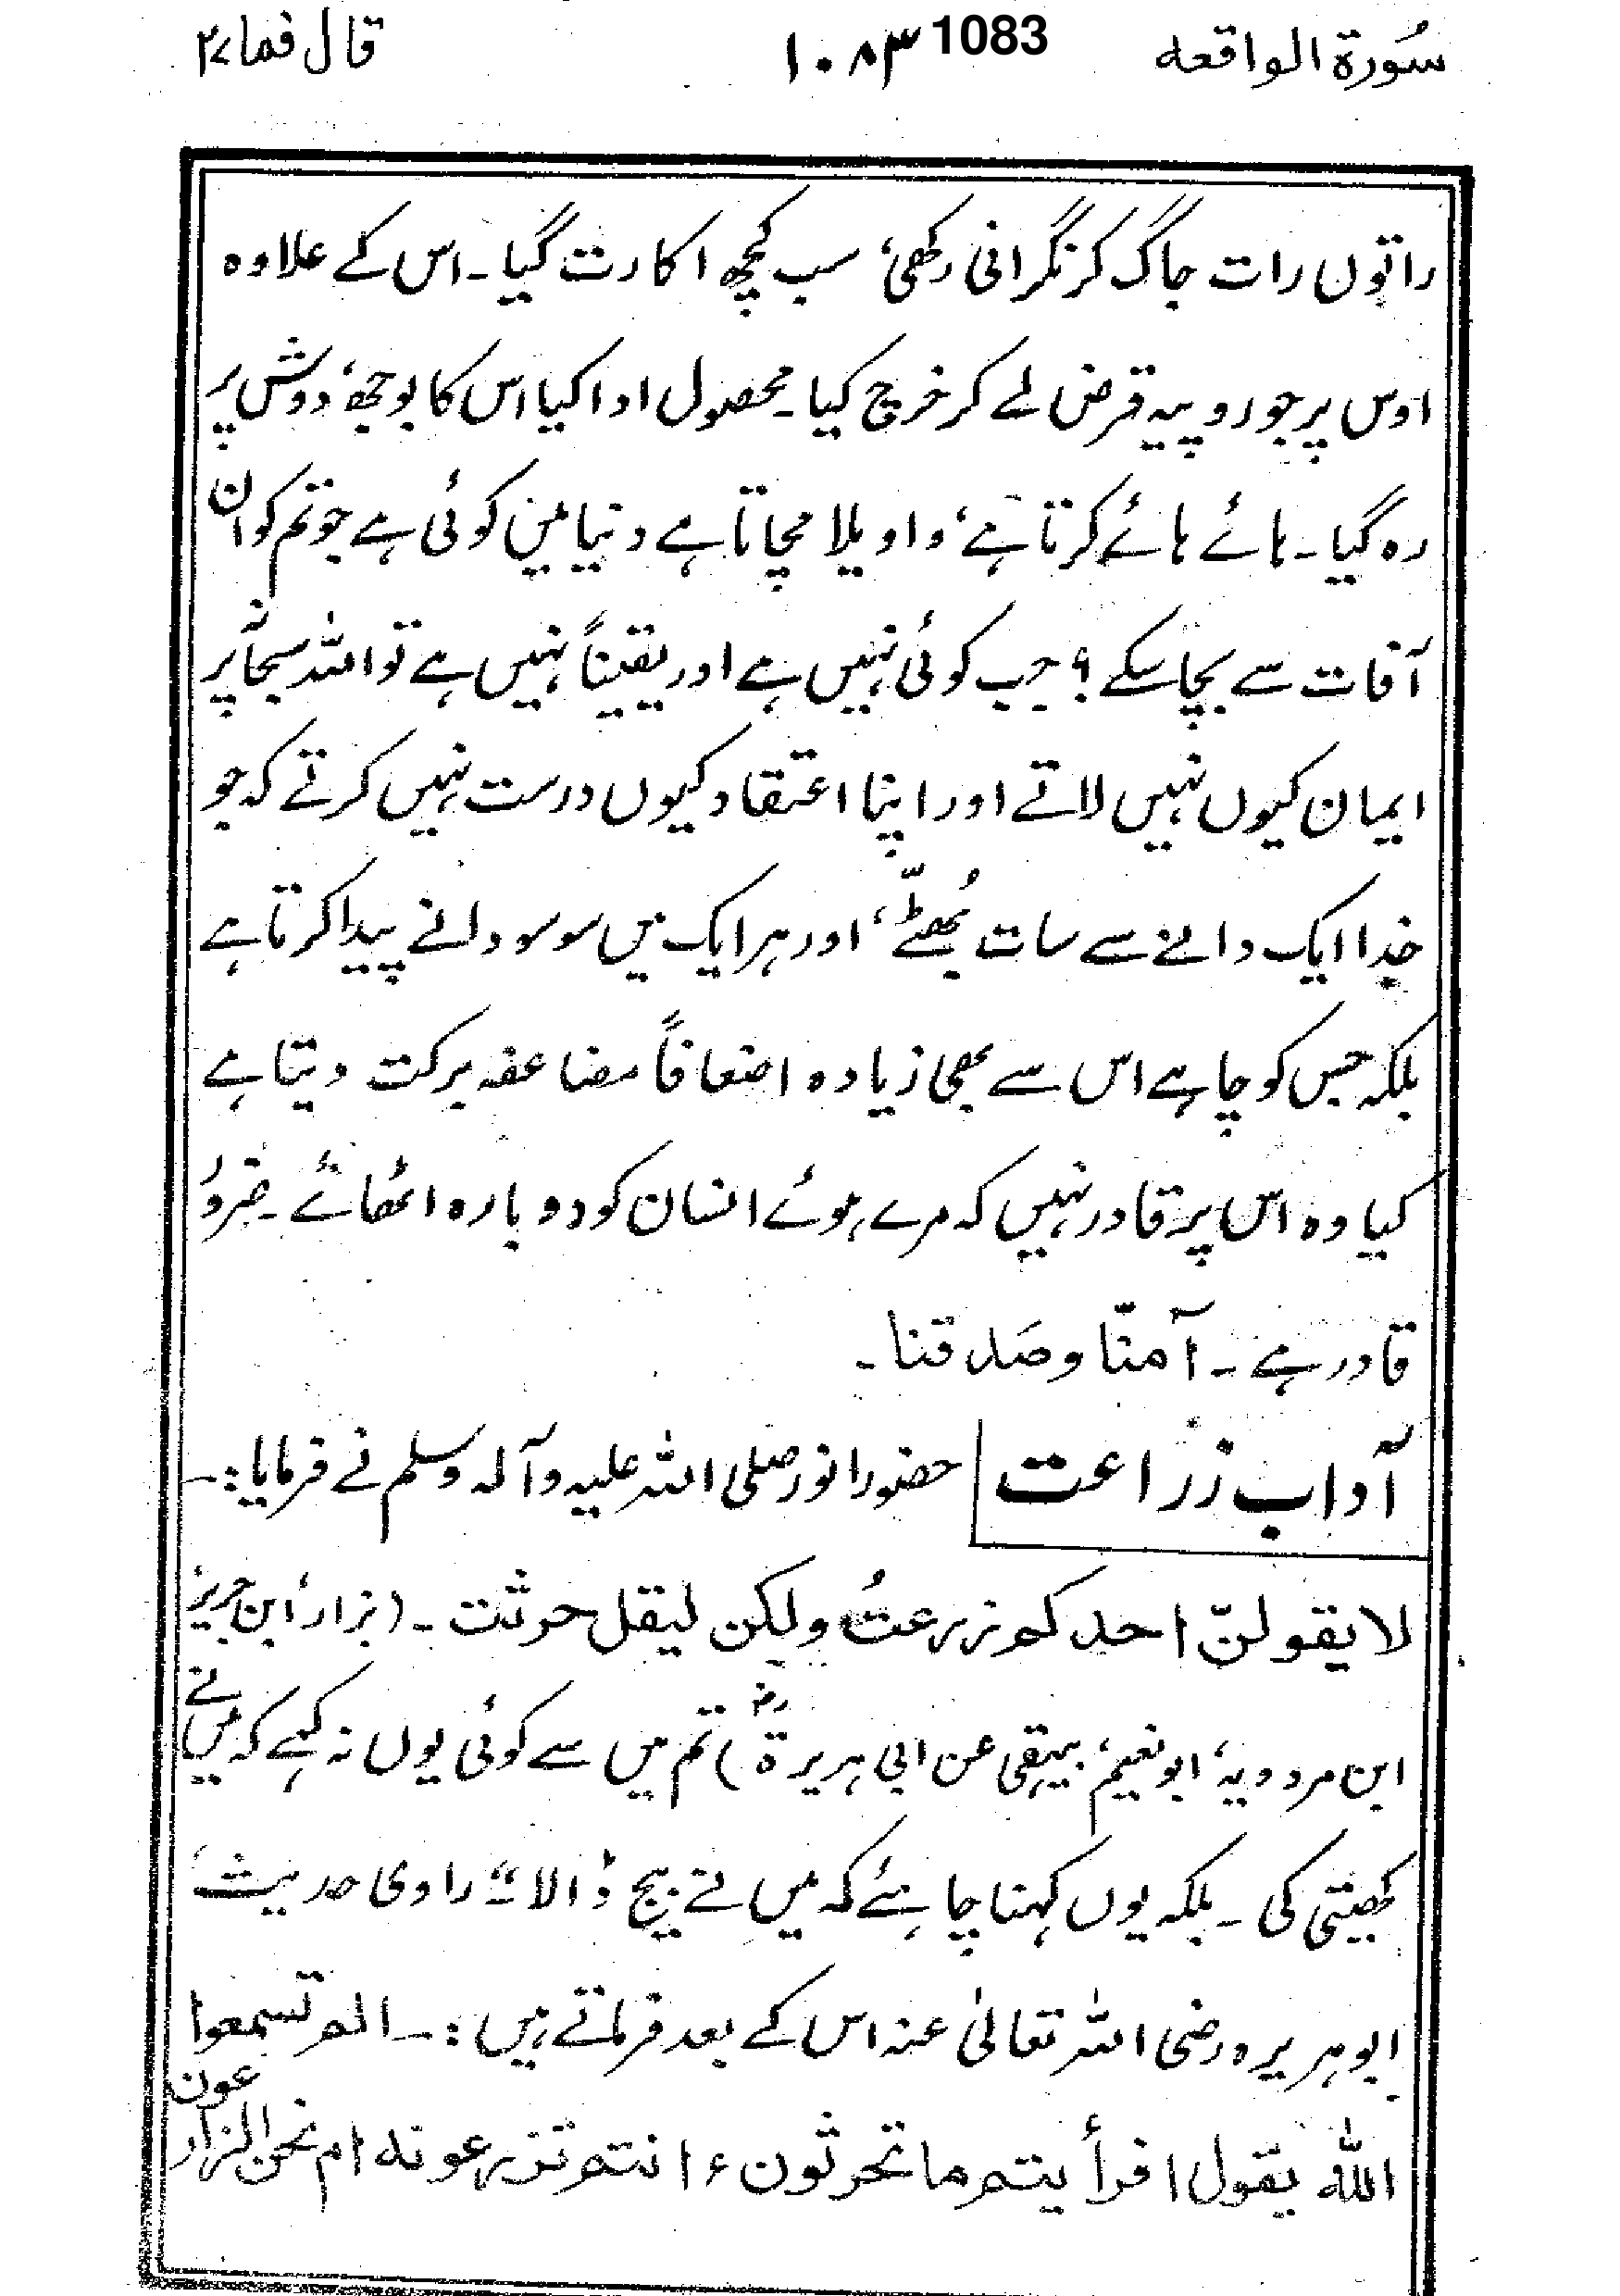 سُورة الواقعه ۱۰۸۳ 1083 قال فما ۲۷
راتوں رات جاگ کر نگرانی رکھی، سب کچھ اکارت گیا۔ اس کے علاوہ
اوس پر جو روپیہ قرض لے کر خرچ کیا۔ محصول ادا کیا اس کا بوجھ، دوش پر
رہ گیا۔ ہائے ہائے کرتا ہے، واویلا مچاتا ہے دنیا میں کوئی ہے جو تم کو ان
آفات سے بچا سکے؟ جب کوئی نہیں ہے اور یقیناً نہیں ہے تو اللہ سبحانہ پر
ایمان کیوں نہیں لاتے اور اپنا اعتقاد کیوں درست نہیں کرتے کہ جو
خدا ایک دانے سے سات بُھٹّے، اور ہر ایک میں سو سو دانے پیدا کرتا ہے
بلکہ جس کو چاہے اس سے بھی زیادہ اضعافاً مضاعفہ برکت دیتا ہے
کیا وہ اس پر قادر نہیں کہ مرے ہوئے انسان کو دوبارہ اٹھائے۔ ضرور
قادر ہے۔ آمنّا وصَدقنا۔
آداب زراعت حضور انور صلی اللہ علیہ وآلہ وسلم نے فرمایا:۔
لا یقولنّ احدکم زرعتُ ولکن لیقل حرثت۔ (بزار، ابن جریر،
ابن مردویہ، ابو نعیم، بیہقی عن ابی ہریرۃ رضؓ) تم میں سے کوئی یوں نہ کہے کہ میں نے
کھیتی کی۔ بلکہ یوں کہنا چاہئے کہ میں نے بیج ڈالا۔" راوی حدیث
ابو ہریرہ رضی اللہ تعالیٰ عنہ اس کے بعد فرماتے ہیں:۔ الم تسمعوا
اللہ یقول افرأیتم ما تحرثون ء انتم تزرعونه ام نحن الزارعون